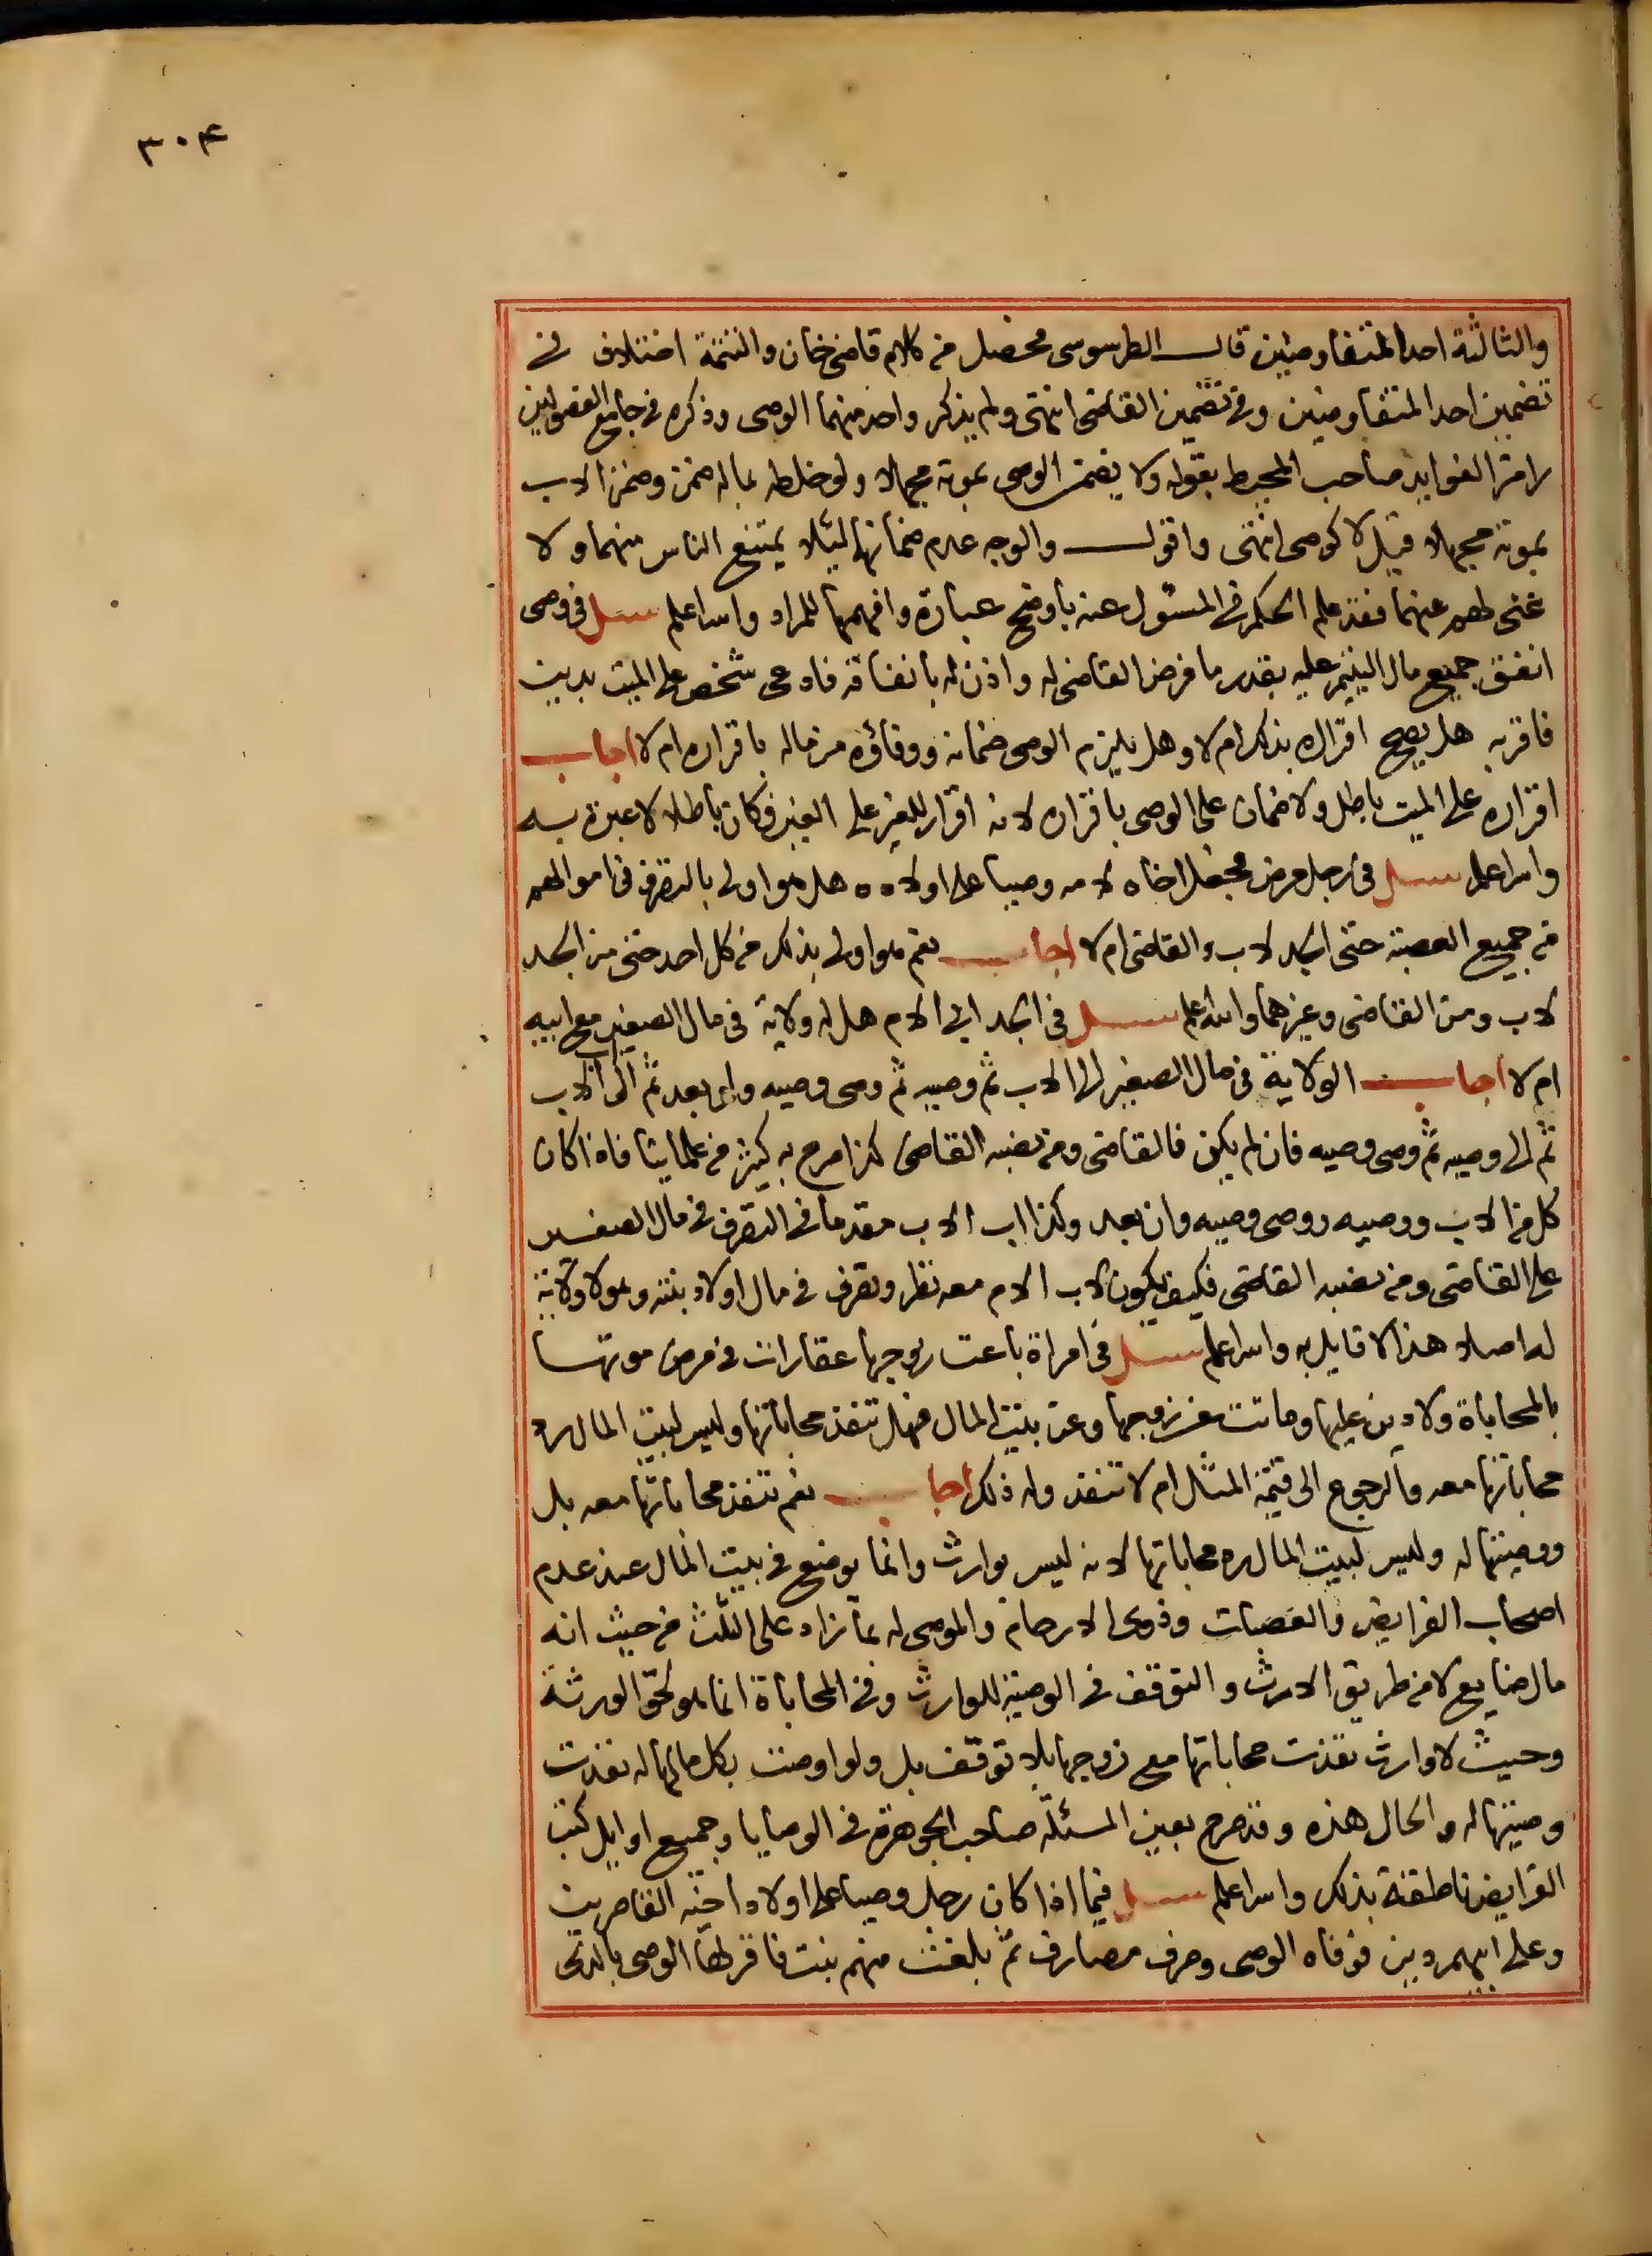 ٣٠٤
والثالثة احد المتفاوضين قال الطرسوسى فحصل من كلام قاضى خان والتتمة اختلاف فى
تضمين احد المتفاوضين وفى تضمين القاضى انتهى ولم يذكر واحد منهما الوصى وذكره فى جامع الفصولين
رامزا لفوايد صاحب المحيط بقوله ولا يضمن الوصى بموته مجهلا ولو خلطه بماله ضمن وضمن الاب
بموته مجهلا وقيل لا كوصى انتهى واقول والوجه عدم ضمانهما لئلا يمتنع الناس منهما ولا
غنى لهم عنهما فقد علم الحكم فى المسئول عنه باوضح عبارة وافهمها للمراد والله اعلم سئل فى وصى
انفق جميع مال اليتيم عليه بقدر ما فرض القاضى له واذن له بانفاقه فادعى شخص على الميت بدين
فاقر به هل يصح اقراره بذلك ام لا وهل يلزم الوصى ضمانه ووفاؤه من ماله باقراره ام لا اجاب
اقراره على الميت باطل ولا ضمان على الوصى باقراره لانه اقرار للغير على الغير فكان باطلا لا عبرة به
والله اعلم سئل فى رجل مرض فجعل اخاه لامه وصيا على اولاده هل هو اولى بالتصرف فى اموالهم
من جميع العصبة حتى الجد لاب والقاضى ام لا اجاب نعم هو اولى بذلك من كل احد حتى من الجد
لاب ومن القاضى وغيرهما والله اعلم سئل فى الجد ابى الام هل له ولاية فى مال الصغير مع ابيه
ام لا اجاب الولاية فى مال الصغير الى الاب ثم وصيه ثم وصى وصيه ولو بعد ثم الى اب الاب
ثم الى وصيه ثم وصى وصيه فان لم يكن فالقاضى ومن نصبه القاضى كذا صرح به كثير من علماينا فاذا كان
كل من الاب ووصيه ووصى وصيه وان بعد وكذا اب الاب مقدما فى التصرف فى مال الصغير
على القاضى ومن نصبه القاضى فكيف يكون لاب الام معه نظر وتصرف فى مال اولاد بنته وهو لا ولاية
له اصلا هذا لا قايل به والله اعلم سئل فى امراة باعت زوجها عقارات فى مرض موتها
بالمحاباة ولا دين عليها وماتت عن زوجها وعن بيت المال فهل تنفذ محاباتها وليس لبيت المال رد
محاباتها معه والرجوع الى قيمة المثل ام لا تنفذ وله ذلك اجاب نعم تنفذ محاباتها معه بل
ووصيتها له وليس لبيت المال رد محاباتها لانه ليس بوارث وانما يوضع فى بيت المال عند عدم
اصحاب الفرايض والعصبات وذوى الارحام والموصى له بما زاد على الثلث من حيث انه
مال ضايع لا من طريق الارث والتوقف فى الوصية للوارث وفى المحاباة انما هو لحق الورثة
وحيث لا وارث نفذت محاباتها مع زوجها بلا توقف بل ولو اوصت بكل مالها له نفذت
وصيتها له والحال هذه وقد صرح بعين المسئلة صاحب الجوهرة فى الوصايا وجميع اوايل كتب
الفرايض ناطقة بذلك والله اعلم سئل فيما اذا كان رجل وصيا على اولاد اخيه القاصرين
وعلى ابيهم دين فوفاه الوصى وصرف مصارف ثم بلغت منهم بنت فاقر لها الوصى بالذى